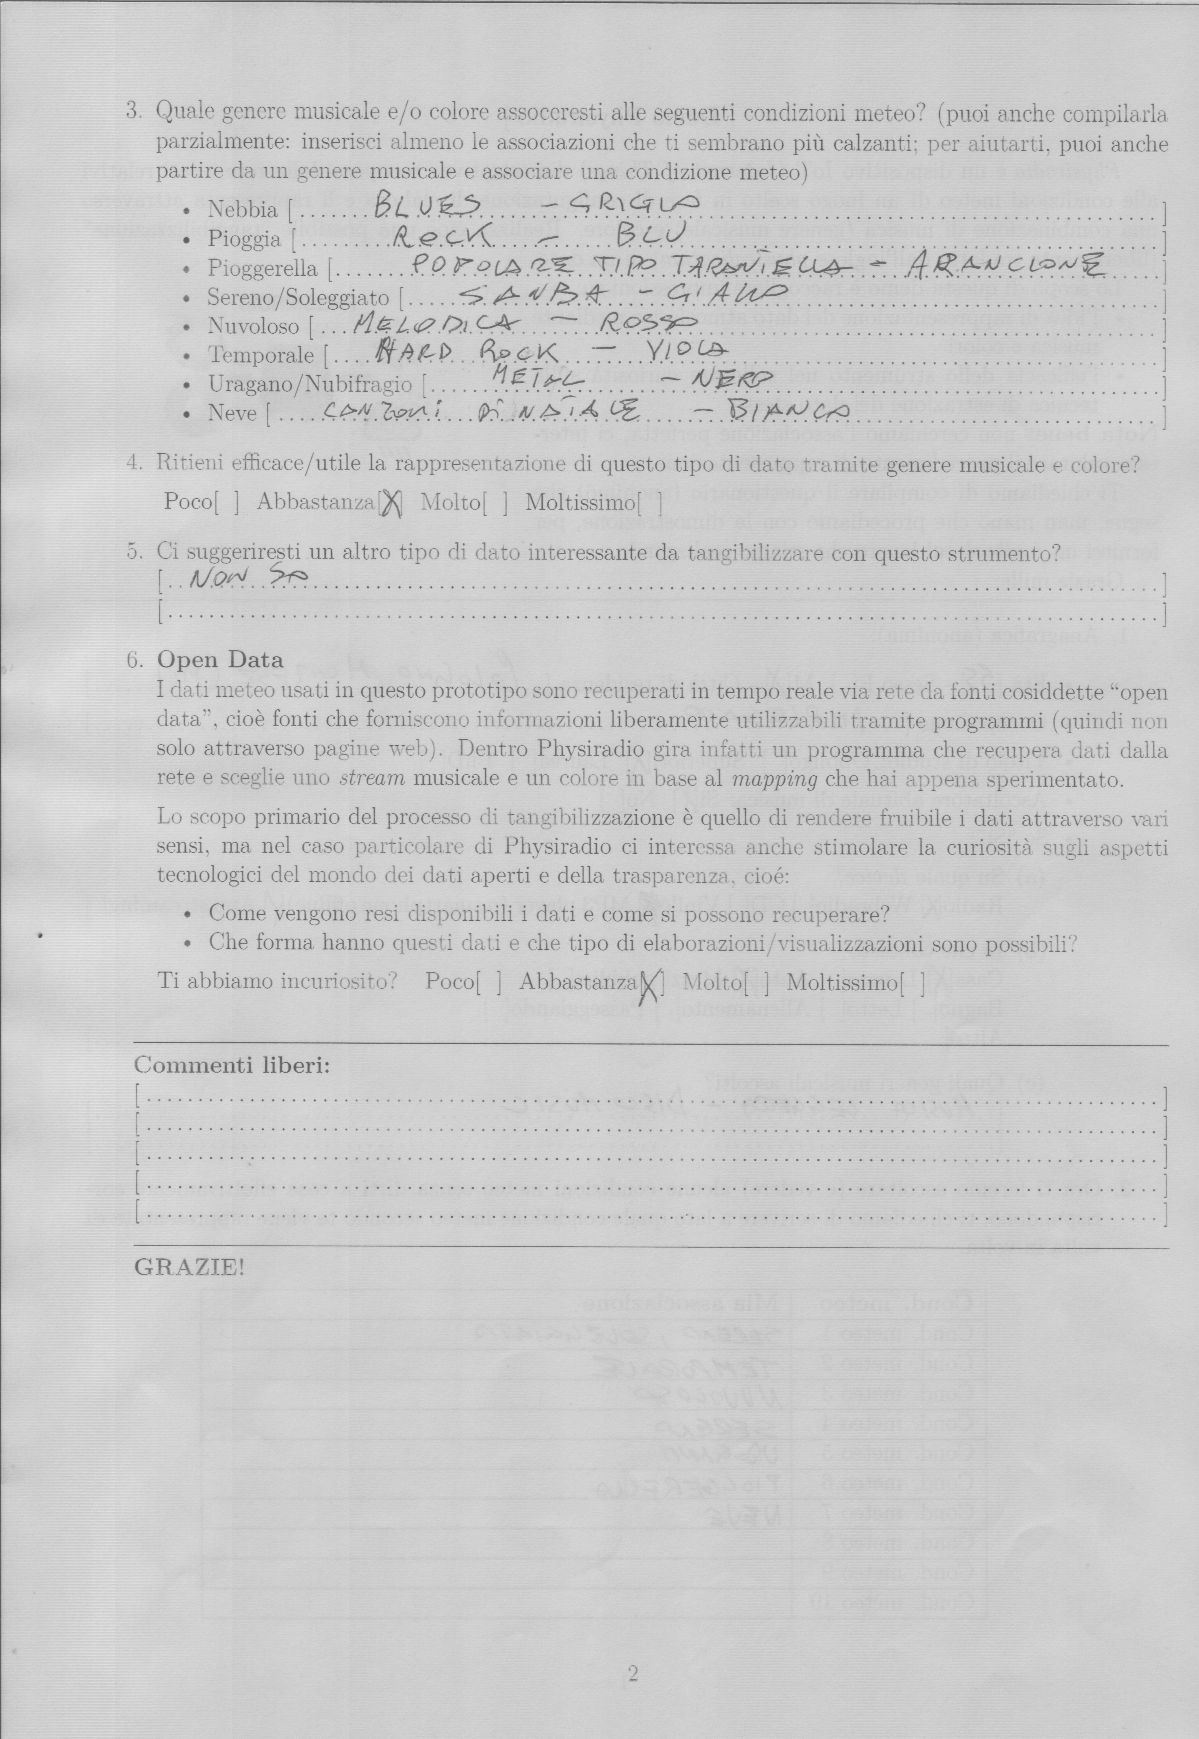 3. Quale genere musicale e/o colore assoceresti alle seguenti condizioni meteo? (puoi anche compilarla
parzialmente: inserisci almeno le associazioni che ti sembrano più calzanti; per aiutarti, puoi anche
partire da un genere musicale e associare una condizione meteo)
• Nebbia [ BLUES - GRIGIO ]
• Pioggia [ ROCK - BLU ]
• Pioggerella [ POPOLARE TIPO TARANTELLA - ARANCIONE ]
• Sereno/Soleggiato [ SANBA - GIALLO ]
• Nuvoloso [ MELODICA - ROSSO ]
• Temporale [ HARD ROCK - VIOLA ]
• Uragano/Nubifragio [ METAL - NERO ]
• Neve [ CANZONI DI NATALE - BIANCO ]
4. Ritieni efficace/utile la rappresentazione di questo tipo di dato tramite genere musicale e colore?
Poco[ ] Abbastanza[X] Molto[ ] Moltissimo[ ]
5. Ci suggeriresti un altro tipo di dato interessante da tangibilizzare con questo strumento?
[ NON SO ]
[ ]
6. Open Data
I dati meteo usati in questo prototipo sono recuperati in tempo reale via rete da fonti cosiddette “open
data”, cioè fonti che forniscono informazioni liberamente utilizzabili tramite programmi (quindi non
solo attraverso pagine web). Dentro Physiradio gira infatti un programma che recupera dati dalla
rete e sceglie uno stream musicale e un colore in base al mapping che hai appena sperimentato.
Lo scopo primario del processo di tangibilizzazione è quello di rendere fruibile i dati attraverso vari
sensi, ma nel caso particolare di Physiradio ci interessa anche stimolare la curiosità sugli aspetti
tecnologici del mondo dei dati aperti e della trasparenza, cioé:
• Come vengono resi disponibili i dati e come si possono recuperare?
• Che forma hanno questi dati e che tipo di elaborazioni/visualizzazioni sono possibili?
Ti abbiamo incuriosito? Poco[ ] Abbastanza[X] Molto[ ] Moltissimo[ ]
Commenti liberi:
[ ]
[ ]
[ ]
[ ]
[ ]
GRAZIE!
2